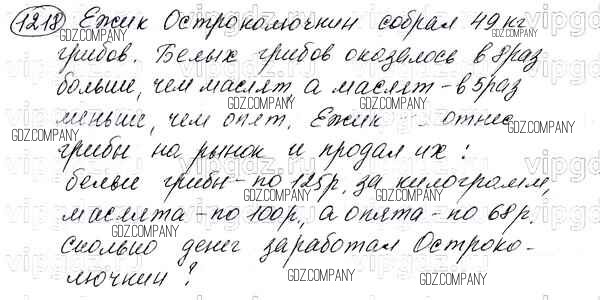 1218 Ежик Остроколючкин собрал 49 кг
грибов. Белых грибов оказалось в 8 раз
больше, чем маслят, а маслят - в 5 раз
меньше, чем опят. Ежик отнес
грибы на рынок и продал их:
белые грибы - по 125 р. за килограмм,
маслята - по 100 р., а опята - по 68 р.
Сколько денег заработал Остроко-
лючкин?
GDZ.COMPANY
vipgdz.ru